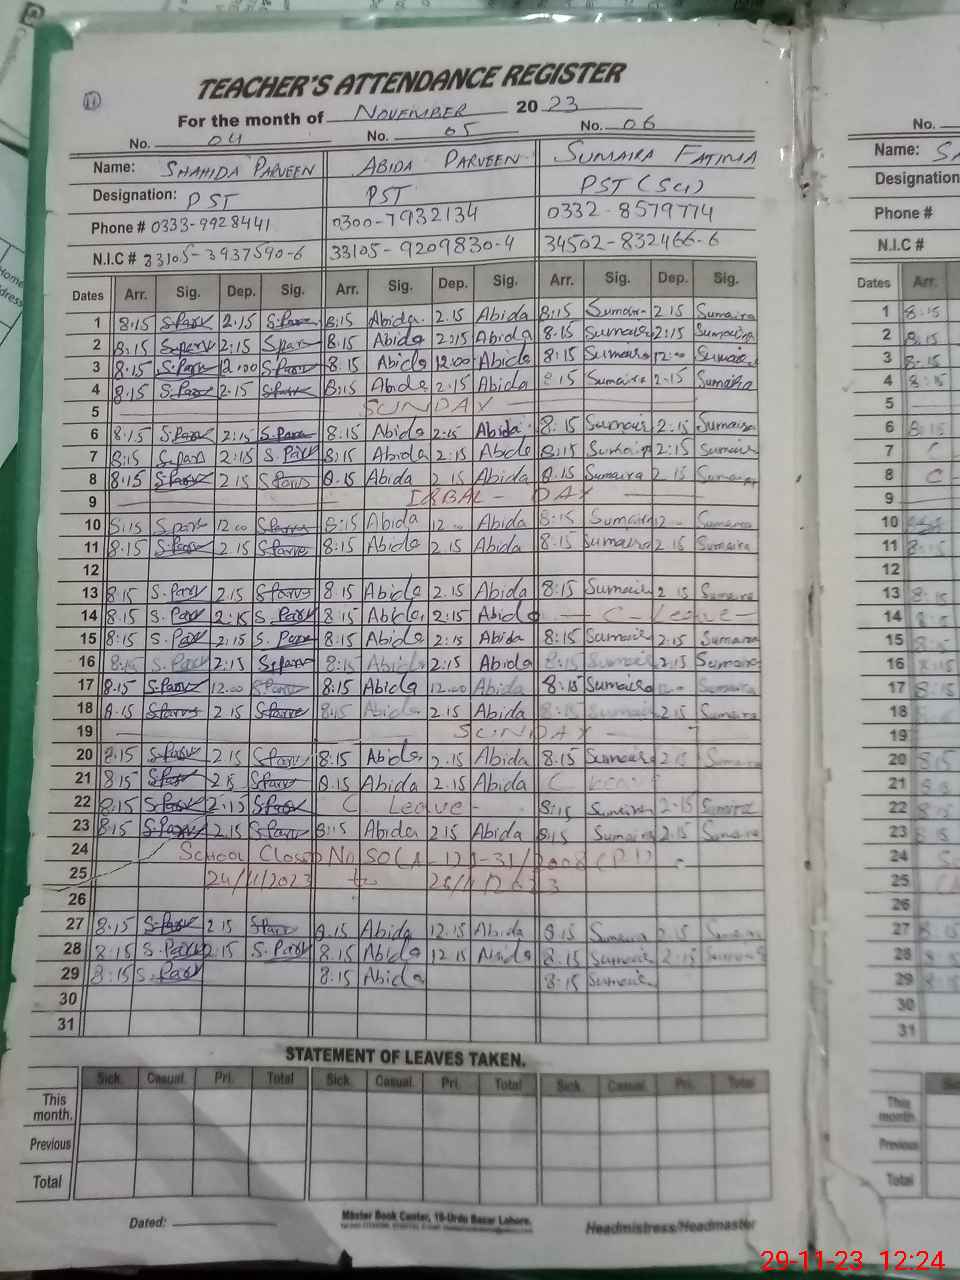 TEACHER'S ATTENDANCE REGISTER
For the month of NOVEMBER 20 23
No. 04 No. 05 No. 06 No.
Name: SHAHIDA PARVEEN ABIDA PARVEEN SUMAIRA FATIMA Name:
Designation: PST PST PST (Sci) Designation
Phone # 0333-9928441 0300-7932134 0332-8579774 Phone #
N.I.C # 33105-3937590-6 33105-9209830-4 34502-832466-6 N.I.C #
Dates Arr. Sig. Dep. Sig. Arr. Sig. Dep. Sig. Arr. Sig. Dep. Sig. Dates Arr.
1 8.15 S.Parv 2.15 S.Parv 8:15 Abida 2.15 Abida 8:15 Sumaira 2.15 Sumaira 1 8.15
2 8:15 S.parv 2:15 S.parv 8.15 Abida 2:15 Abida 8.15 Sumaira 2:15 Sumaira 2 8.15
3 8.15 S.Parv 12.00 S.Parv 8.15 Abida 12.00 Abida 8:15 Sumaira 12.00 Sumaira 3 8.15
4 8.15 S.Parv 2.15 S.Parv 8:15 Abida 2.15 Abida 8:15 Sumaira 2.15 Sumaira 4 8:15
5 SUNDAY 5
6 8:15 S.Parv 2:15 S.Parv 8.15 Abida 2:15 Abida 8:15 Sumaira 2:15 Sumaira 6 8:15
7 8:15 S.parv 2:15 S.Parv 8:15 Abida 2:15 Abida 8:15 Sumaira 2:15 Sumaira 7 C
8 8.15 S.Parv 2 15 S Parv 8.15 Abida 2 15 Abida 8.15 Sumaira 2 15 Sumaira 8 C
9 IQBAL - DAY 9
10 8:15 S parv 12 00 S.Parve 8:15 Abida 12 00 Abida 8:15 Sumaira 12 Sumaira 10
11 8.15 S.Parv 2 15 S.Parve 8:15 Abida 2.15 Abida 8:15 Sumaira 2 15 Sumaira 11 8:15
12 12
13 8.15 S.Parv 2.15 S.Parve 8 15 Abida 2.15 Abida 8:15 Sumaira 2 15 Sumaira 13 8:15
14 8.15 S.Parv 2:15 S.Parv 8:15 Abida 2:15 Abida C Leave 14 8:15
15 8:15 S.Parv 2:15 S.Parv 8:15 Abida 2:15 Abida 8:15 Sumaira 2.15 Sumaira 15 8:15
16 8:15 S.Parv 2:15 S.parv 8:15 Abida 2:15 Abida 8:15 Sumaira 2.15 Sumaira 16 8:15
17 8.15 S.Parv 12.00 S.Parve 8:15 Abida 12.00 Abida 8:15 Sumaira 12 Sumaira 17 8:15
18 8.15 S.Parve 2 15 S.Parve 8:15 Abida 2.15 Abida 8:15 Sumaira 2.15 Sumaira 18
19 SUNDAY 19
20 8.15 S.Parv 2 15 S.Parv 8.15 Abida 2.15 Abida 8.15 Sumaira 2 15 Sumaira 20 8:15
21 8:15 S.Parv 2 15 S.Parv 8.15 Abida 2.15 Abida C Leave 21 8 8
22 8:15 S.Parv 2:15 S.Parv C Leave - 8:15 Sumaira 2.15 Sumaira 22 8:15
23 8:15 S.Parv 2.15 S.Parv 8:15 Abida 2 15 Abida 8:15 Sumaira 2.15 Sumaira 23 8:15
24 School Closed No SO(A-1)1-31/2008(P1) 24
25 24/11/2023 to 26/11/2023 25
26 26
27 8.15 S.Parv 2 15 S.Parv 8.15 Abida 12.15 Abida 8:15 Sumaira 2.15 Sumaira 27 8.15
28 8.15 S.Parv 2.15 S.Parv 8.15 Abida 12 15 Abida 8.15 Sumaira 2.15 Sumaira 28
29 8:15 S.Parv 8.15 Abida 8:15 Sumaira 29
30 30
31 31
STATEMENT OF LEAVES TAKEN.
Sick. Casual. Pri. Total Sick. Casual. Pri. Total Sick. Casual. Pri. Total
This month. This month.
Previous Previous
Total Total
Dated: Master Book Center, 18-Urdu Bazar Lahore. Headmistress/Headmaster
29-11-23 12:24